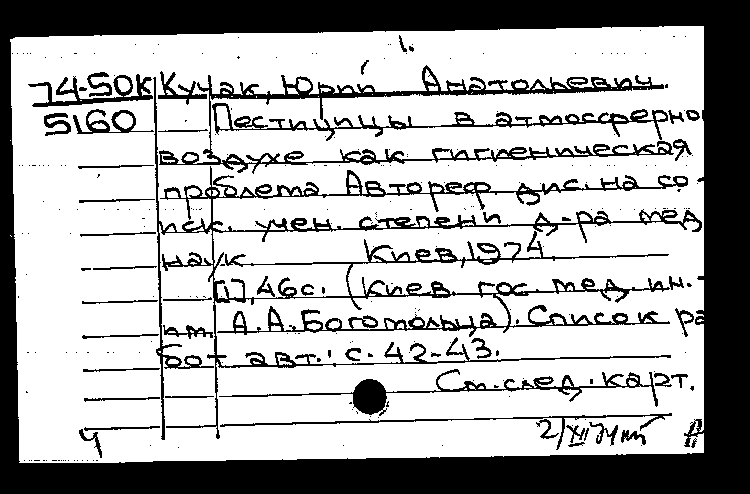 1.
74-50К Кучак, Юрий Анатольевич.
5160 Пестициды в атмосферно
воздухе как гигиеническая
проблема. Автореф. дис. на со-
иск. учен. степени д-ра мед
наук. Киев, 1974.
[1], 46с. (Киев. гос. мед. ин.-
им. А.А.Богомольца). Список ра
бот авт.: с. 42-43.
См. след. карт.
Ч 2/XII 74